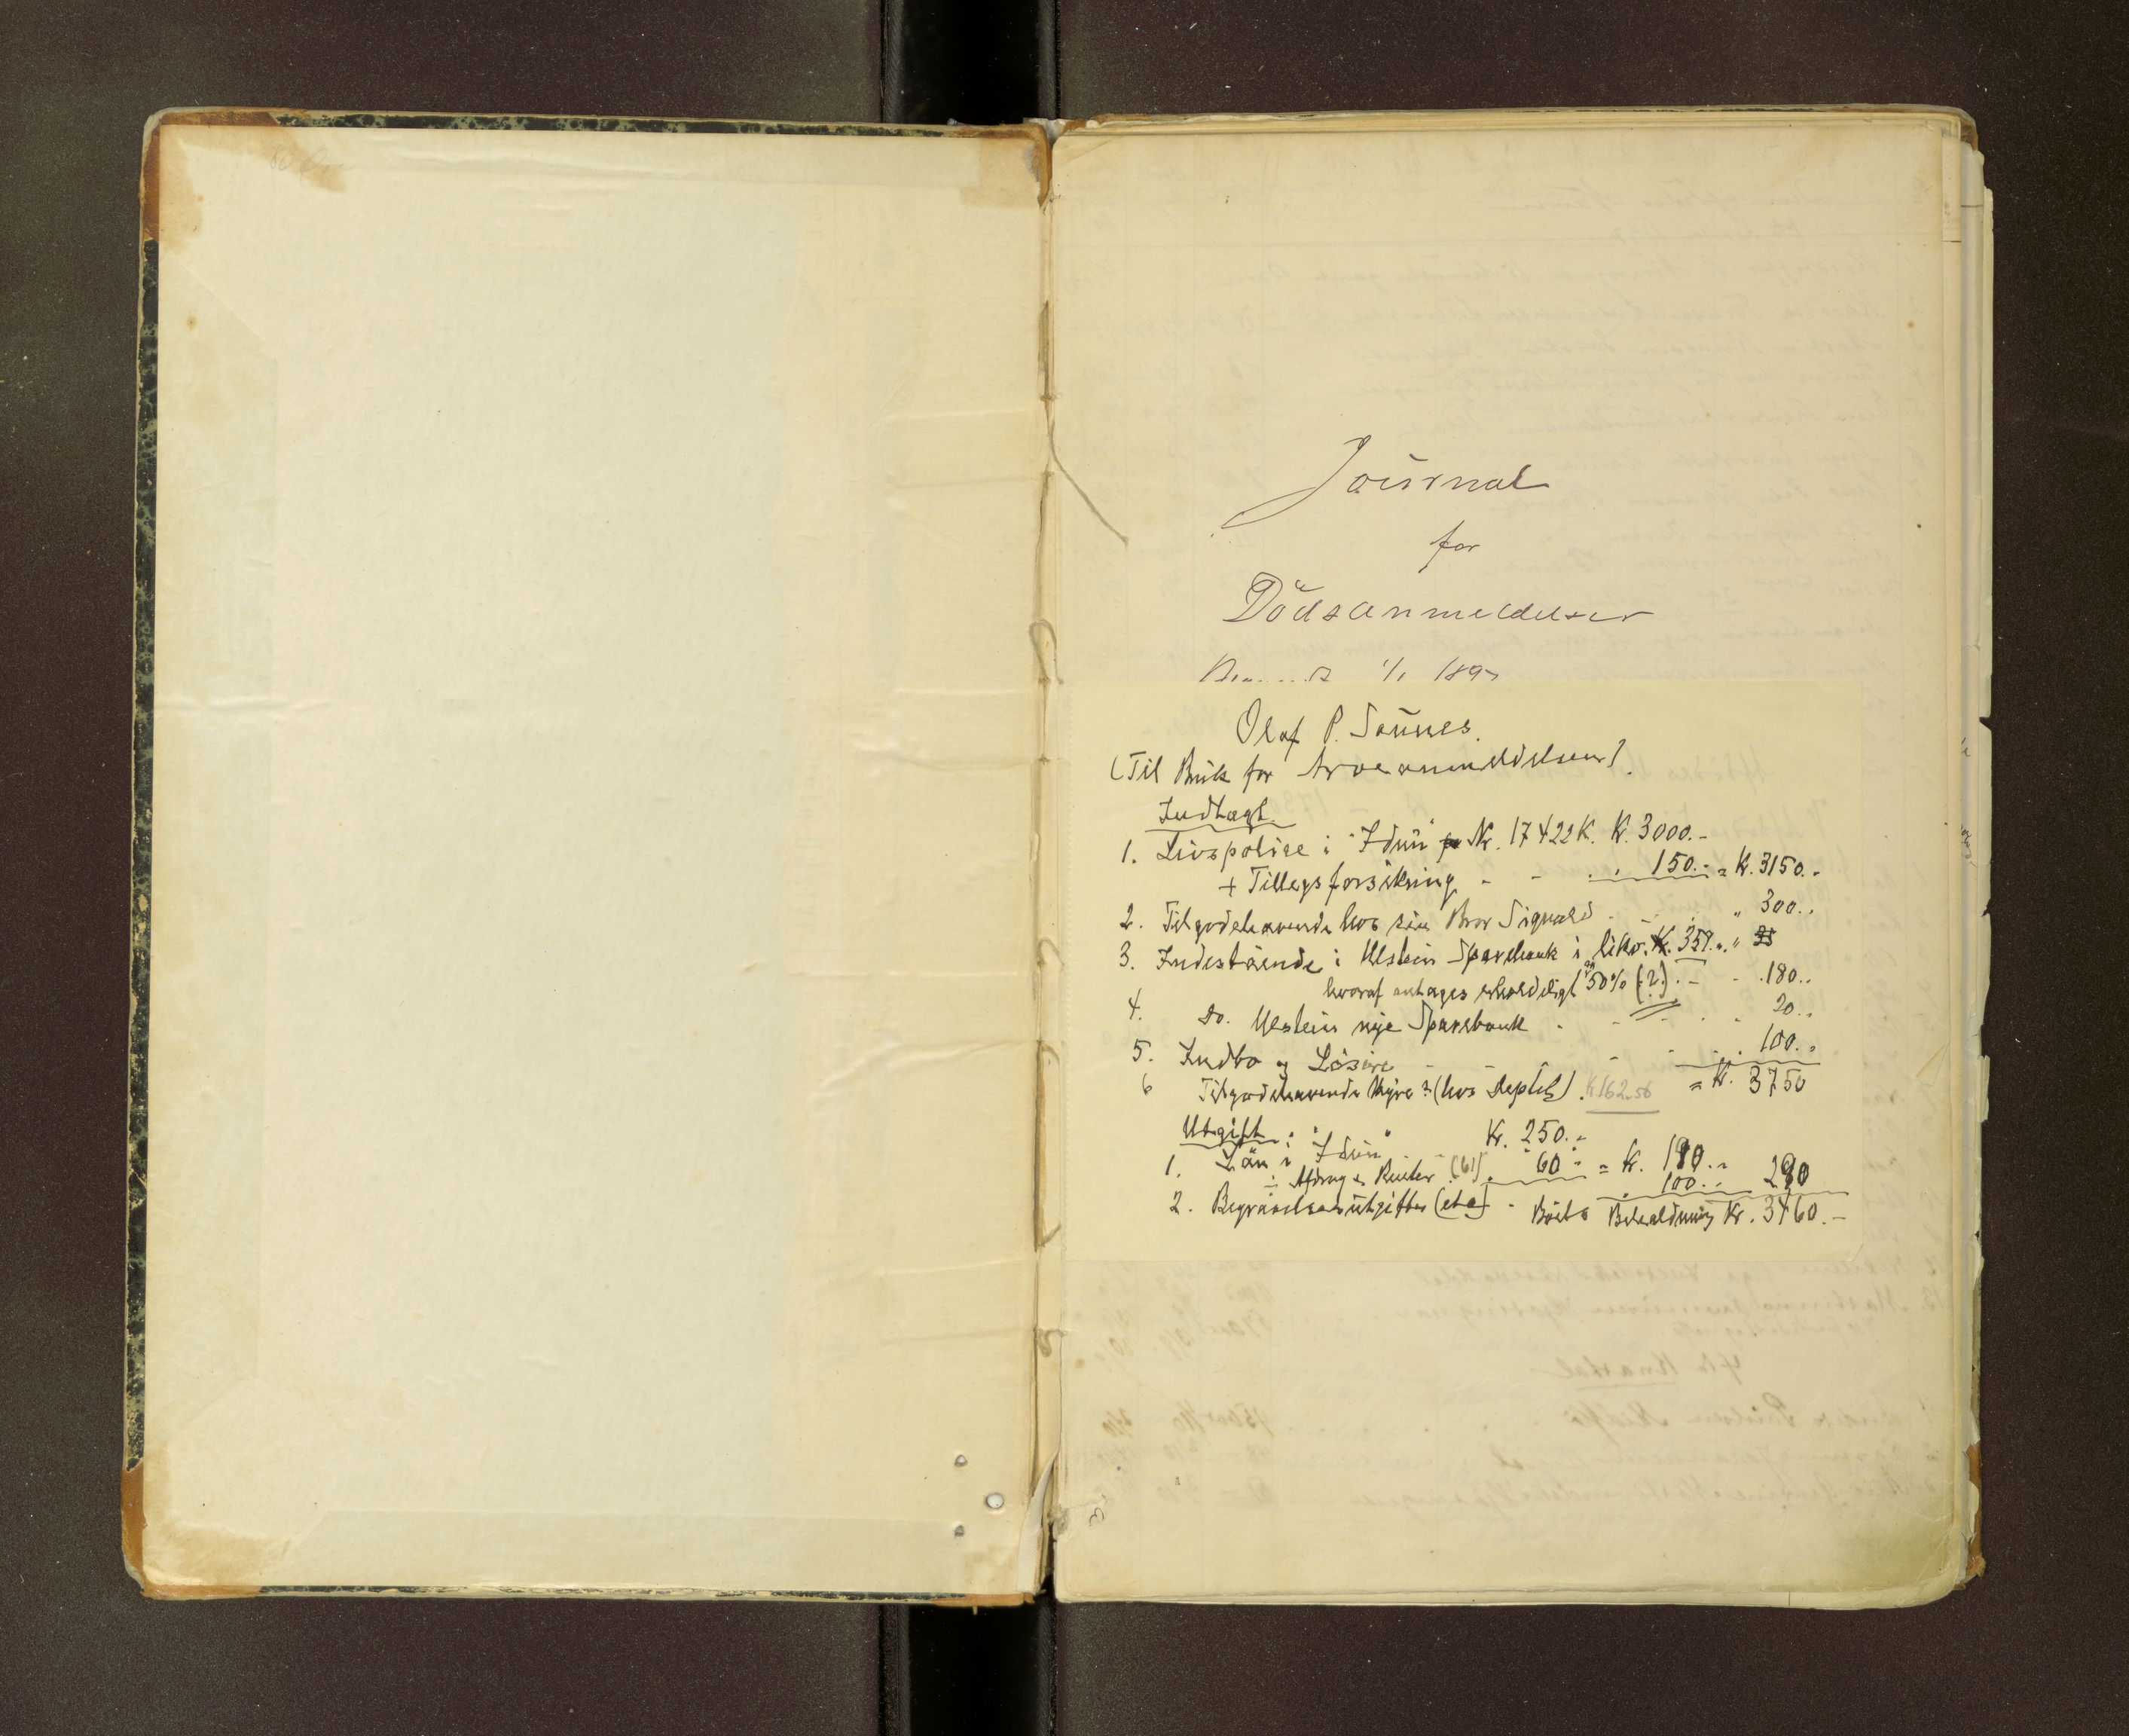 Journal
for
Dödsanmeldelser
1/1 189
Olaf P. Saunes.
(Til Bruk for Arveanmeldelsen).
Indtægt
1. Livspolise i "Idun" Nr. 17422K. Kr. 3000.-
+ Tillægsforsikring - - " 150.- = Kr. 3150.-
2. Tilgodehavende hos sin Bror Sigvald - - " 300..
3. Indestående i Ulstein Sparebank i likv. Kr. 359.. "
hvoraf antages erholdeligt 50% (?). - - .180..
4. Do. Ulstein nye Sparebank . - - . . 20..
5. Indbo og Lösöre - - - - . . 100..
6 Tilgodehavende Hyre? (hos ). K 162.56 = Kr. 3750
Utgift.
1. Lån i "Idun" Kr. 250.-
÷ Afdrag & Renter (61) . 60.- = Kr. 190..
2. Begravelsesutgifter (etc) - . 100.. 290
Boets Beholdning Kr. 3460.-